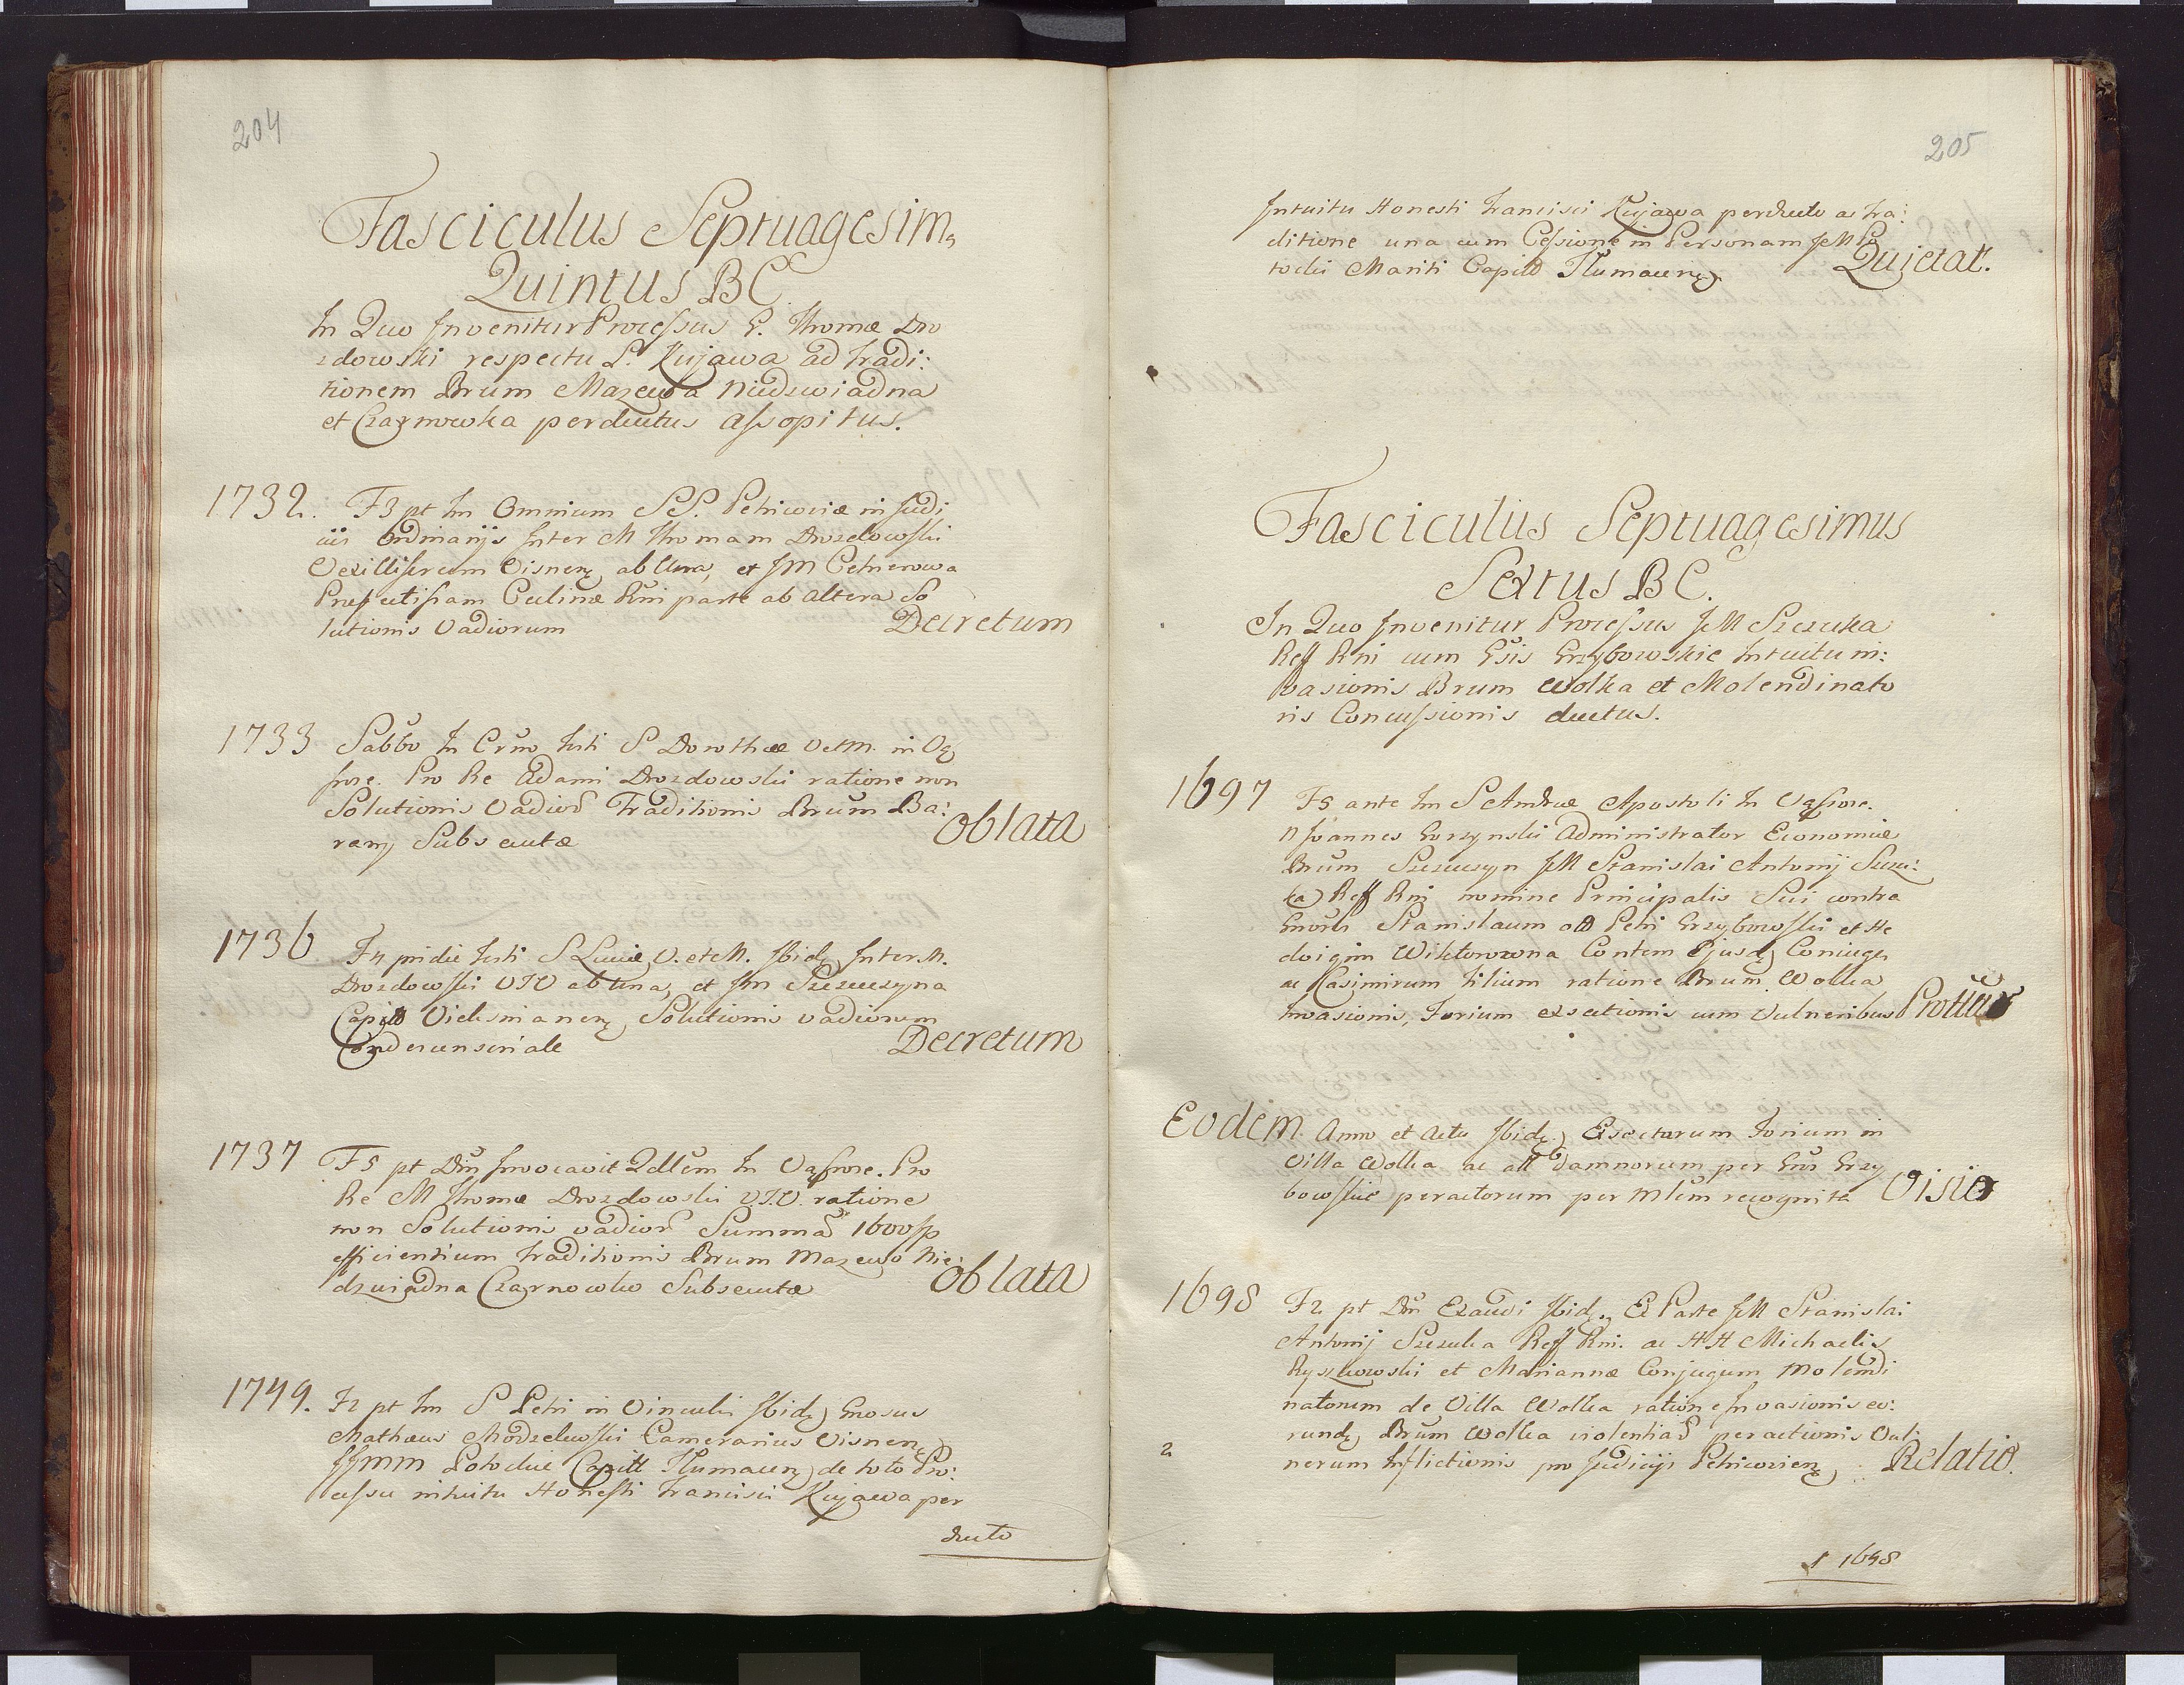 204
Fasciculus Septuagesim,
Quintus BC
In Quo Invenitur Processus G. Thomæ Dro
zdowski respectu L. Kujawa ad Tradi:
tionem Brum Mazewo Niedzwiadna
et Czarnowka perductus assopitus.
1732. F3 pt Im Omnium SS. Petricoviæ in Judi
iis Ordinarijs Inter M Thomam Drozdowski
Vexilliferum Visnen, ab Una, et JM Cetnerowa
Præfectissam Culinæ Rni parte ab altera So
lutionis Vadiorum Decretum
1733 Sabbo In Crno festi S Dorotheæ V et M. in Vą
sosze. Pro Re Adami Drozdowski ratione non
Solutionis Vadior Traditionis Brum Ba:
rany Subsecutæ Oblata
1736 F4 pridie festi S Luciæ V. et M. Ibidę Inter M.
Drozdowski VTV ab Una, et JM Szczuczyna
Capitt Vielsnianen Solutionis vadiorum
Condescensoriale Decretum
1737 F5 pt Dūm Invocavit Qdlem In Vąsosze. Pro
Re M Thomæ Drozdowski VTV. ratione
non Solutionis vadior Summā 1600 fp
efficientium traditionis Brum Mazewo Nie:
dzwiadna Czarnowko Subsecutæ Oblata
1749. F2 pt Im S Petri in Vinculis Ibidę Gnosus
Mathæus Modzelewski Camerarius Visnen
JJmm Potockie Capitt Tlumacen de toto Pro:
cessu intuitu Honesti Francisci Kujawa per
ducto
205
Intuitu Honesti Francisci Kujawa perducto ac Tra:
ditione una cum Cessione in Personam JM Po
tocki Mariti Capitt Tlumacen Qujetat.
Fasciculus Septuagesimus
Sextus BC.
In Quo Invenitur Processus JM Szczuka
Reff Rni cum Gsis Grzybowskie Intuitu in:
vasionis Brum Wolka et Molendinato
ris Concussionis ductus.
1697 F5 ante Im S Andreæ Apostoli In Vąsosze.
N Joannes Gorzynski Administrator Economiæ
Brum Szczuczyn JM Stanislai Antonij Szczu:
ka Reff Rni nomine Principalis Sui contra
Gnoros Stanislaum olt Petri Grzybowski et He
dvigim Wiktorowna Contem Ejusdę Coniuges
ac Casimirum filium ratione Brum Wolka
invasionis, Forium exsectionis cum Vulneribus Prottio
Eodem Anno et Actu Ibidę Exsectarum Forium in
Villa Wolka ac alt damnorum per Gnos Grzy
bowskie peractorum per Mlem recognita Visio
1698 F2 pt Dm Exaudi Ibidę. Ex Parte JM Stanislai
Antonij Szczuka Reff Rni. ac HH Michaelis
Ryszkowski et Mariannæ Conjugum Molendi
natorum de Villa Wolka ratione Invasionis eo:
rundę Brum Wolka violentiaę peractionis Vul:
nerum Inflictionis pro Judicijs Petricovien Relatio.
2
1 1698